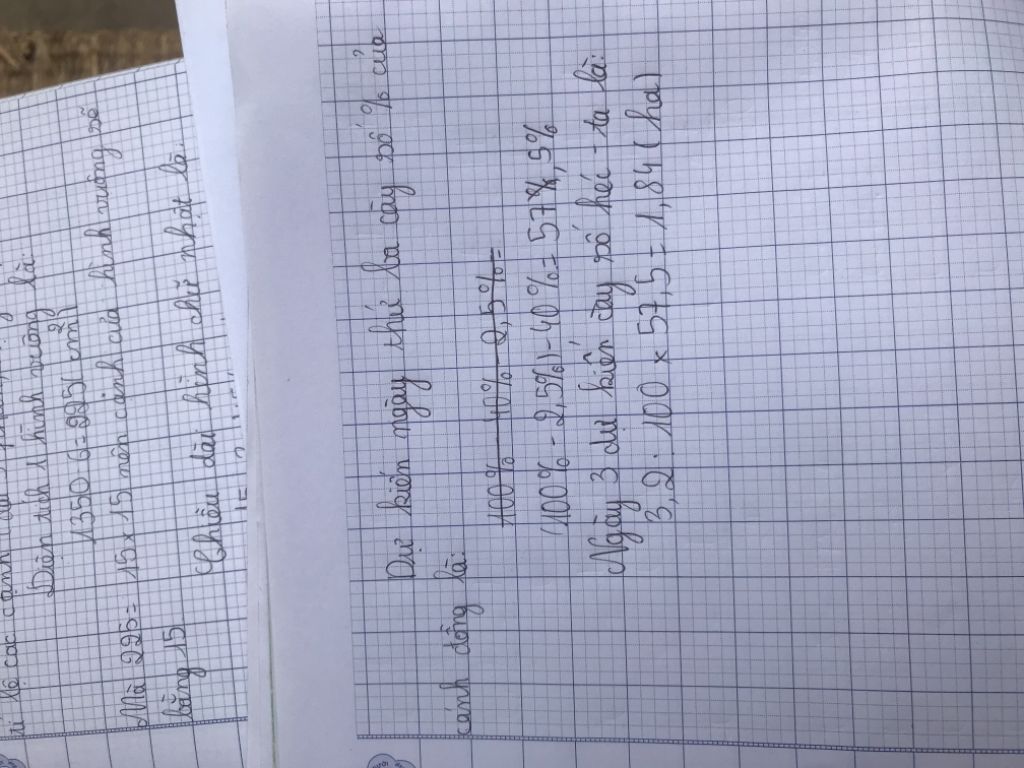 Diện tích 1 hình vuông là:
1350 : 6 = 225 (cm²)
Mà 225 = 15 x 15 nên cạnh của hình vuông số
bằng 15
Chiều dài hình chữ nhật là.
Dự kiến ngày thứ ba cày số % của
cánh đồng là:
100% - 40% - 2,5% =
(100% - 2,5%) - 40% = 57,5%
Ngày 3 dự kiến cày số héc-ta là:
3,2 : 100 x 57,5 = 1,84 (ha)